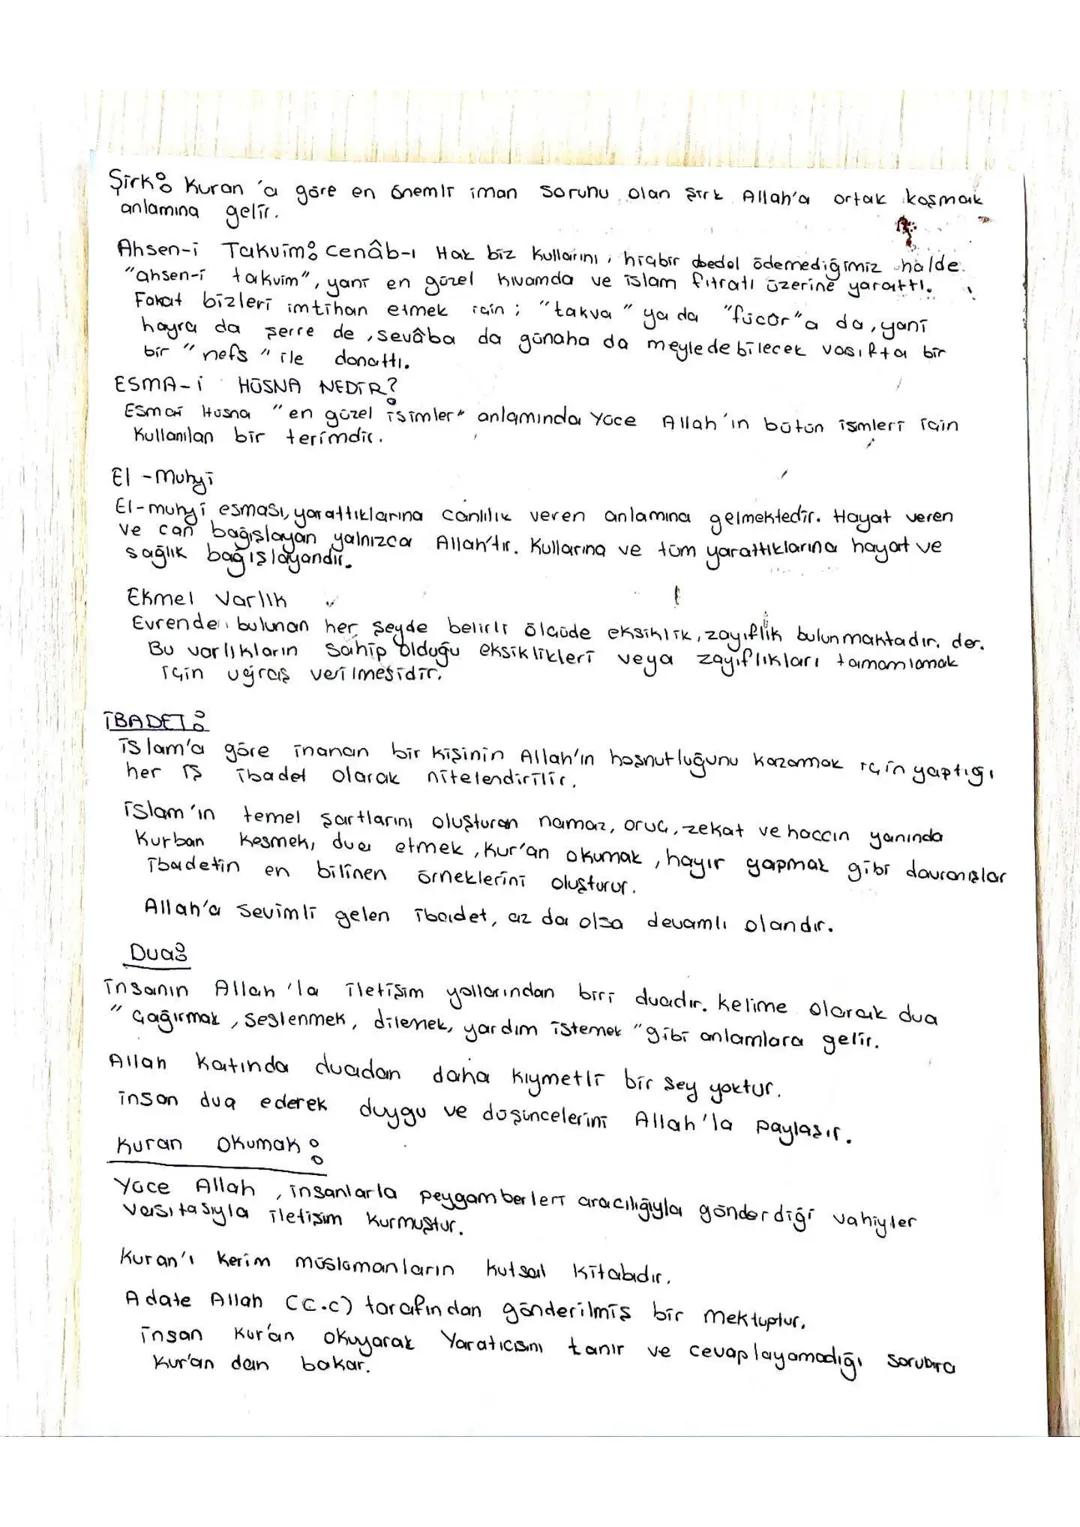 Şirk: Kuran'a göre en önemli iman sorunu olan şirk Allah'a ortak koşmak
anlamına gelir.
Ahsen-i Takvim: Cenâb-ı Hak biz kullarını, hiçbir bedel ödemediğimiz halde.
"ahsen-i takvim", yani en güzel kıvamda ve islam fıtratı üzerine yarattı.
Fakat bizleri imtihan etmek için; "takva" ya da "fücür"a da, yani
hayra da şerre de, sevâba da günaha da meyledebilecek vasıfta bir
bir "nefs" ile donattı.
ESMA-İ HÜSNA NEDİR?
Esmaı Husna "en güzel isimler" anlamında Yüce Allah'ın bütün ismleri için
Kullanılan bir terimdir.
El-Muhyi
El-muhyi esması, yarattıklarına canlılık veren anlamına gelmektedir. Hayat veren
ve can bağışlayan yalnızca Allah'tır. Kullarına ve tüm yarattıklarına hayat ve
sağlık bağışlayandır.
Ekmel Varlık
Evrende bulunan her şeyde belirli ölçüde eksiklik, zayıflık bulunmaktadır, der.
Bu varlıkların sahip olduğu eksiklikleri veya zayıflıkları tamamlamak
için uğraş verilmesidir.
İBADET:
İslam'a göre inanan bir kişinin Allah'ın hoşnutluğunu kazanmak için yaptığı
her iş ibadet olarak nitelendirilir.
İslam'ın temel şartlarını oluşturan namaz, oruç, zekat ve haccın yanında
Kurban kesmek, dua etmek, Kur'an okumak, hayır yapmak gibi davranışlar
ibadetin en bilinen örneklerini oluşturur.
Allah'a sevimli gelen ibadet, az da olsa devamlı olandır.
Dua:
İnsanın Allah'la iletişim yollarından biri duadır. Kelime olarak dua
"çağırmak, seslenmek, dilemek, yardım istemek" gibi anlamlara gelir.
Allah katında duadan daha kıymetli bir şey yoktur.
İnsan dua ederek duygu ve düşüncelerini Allah'la paylaşır.
Kuran Okumak:
Yüce Allah, insanlarla peygamberleri aracılığıyla gönderdiği vahiyler
vasıtasıyla iletişim kurmuştur.
Kuran'ı Kerim müslümanların kutsal kitabıdır.
Adate Allah (c.c) tarafından gönderilmiş bir mektuptur.
İnsan Kur'an okuyarak Yaratıcısını tanır ve cevaplayamadığı
Kur'an dan bakar.